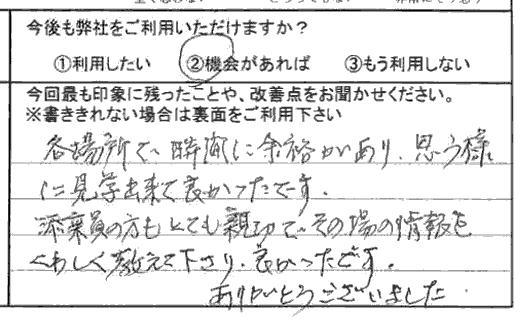 今後も弊社をご利用いただけますか?
①利用したい ②機会があれば ③もう利用しない
今回最も印象に残ったことや、改善点をお聞かせください。
※書ききれない場合は裏面をご利用下さい
各場所で、時間に余裕があり、思う様
に見学出来て良かったです。
添乗員の方もとても親切で、その場の情報を
くわしく教えて下さり、良かったです。
ありがとうございました